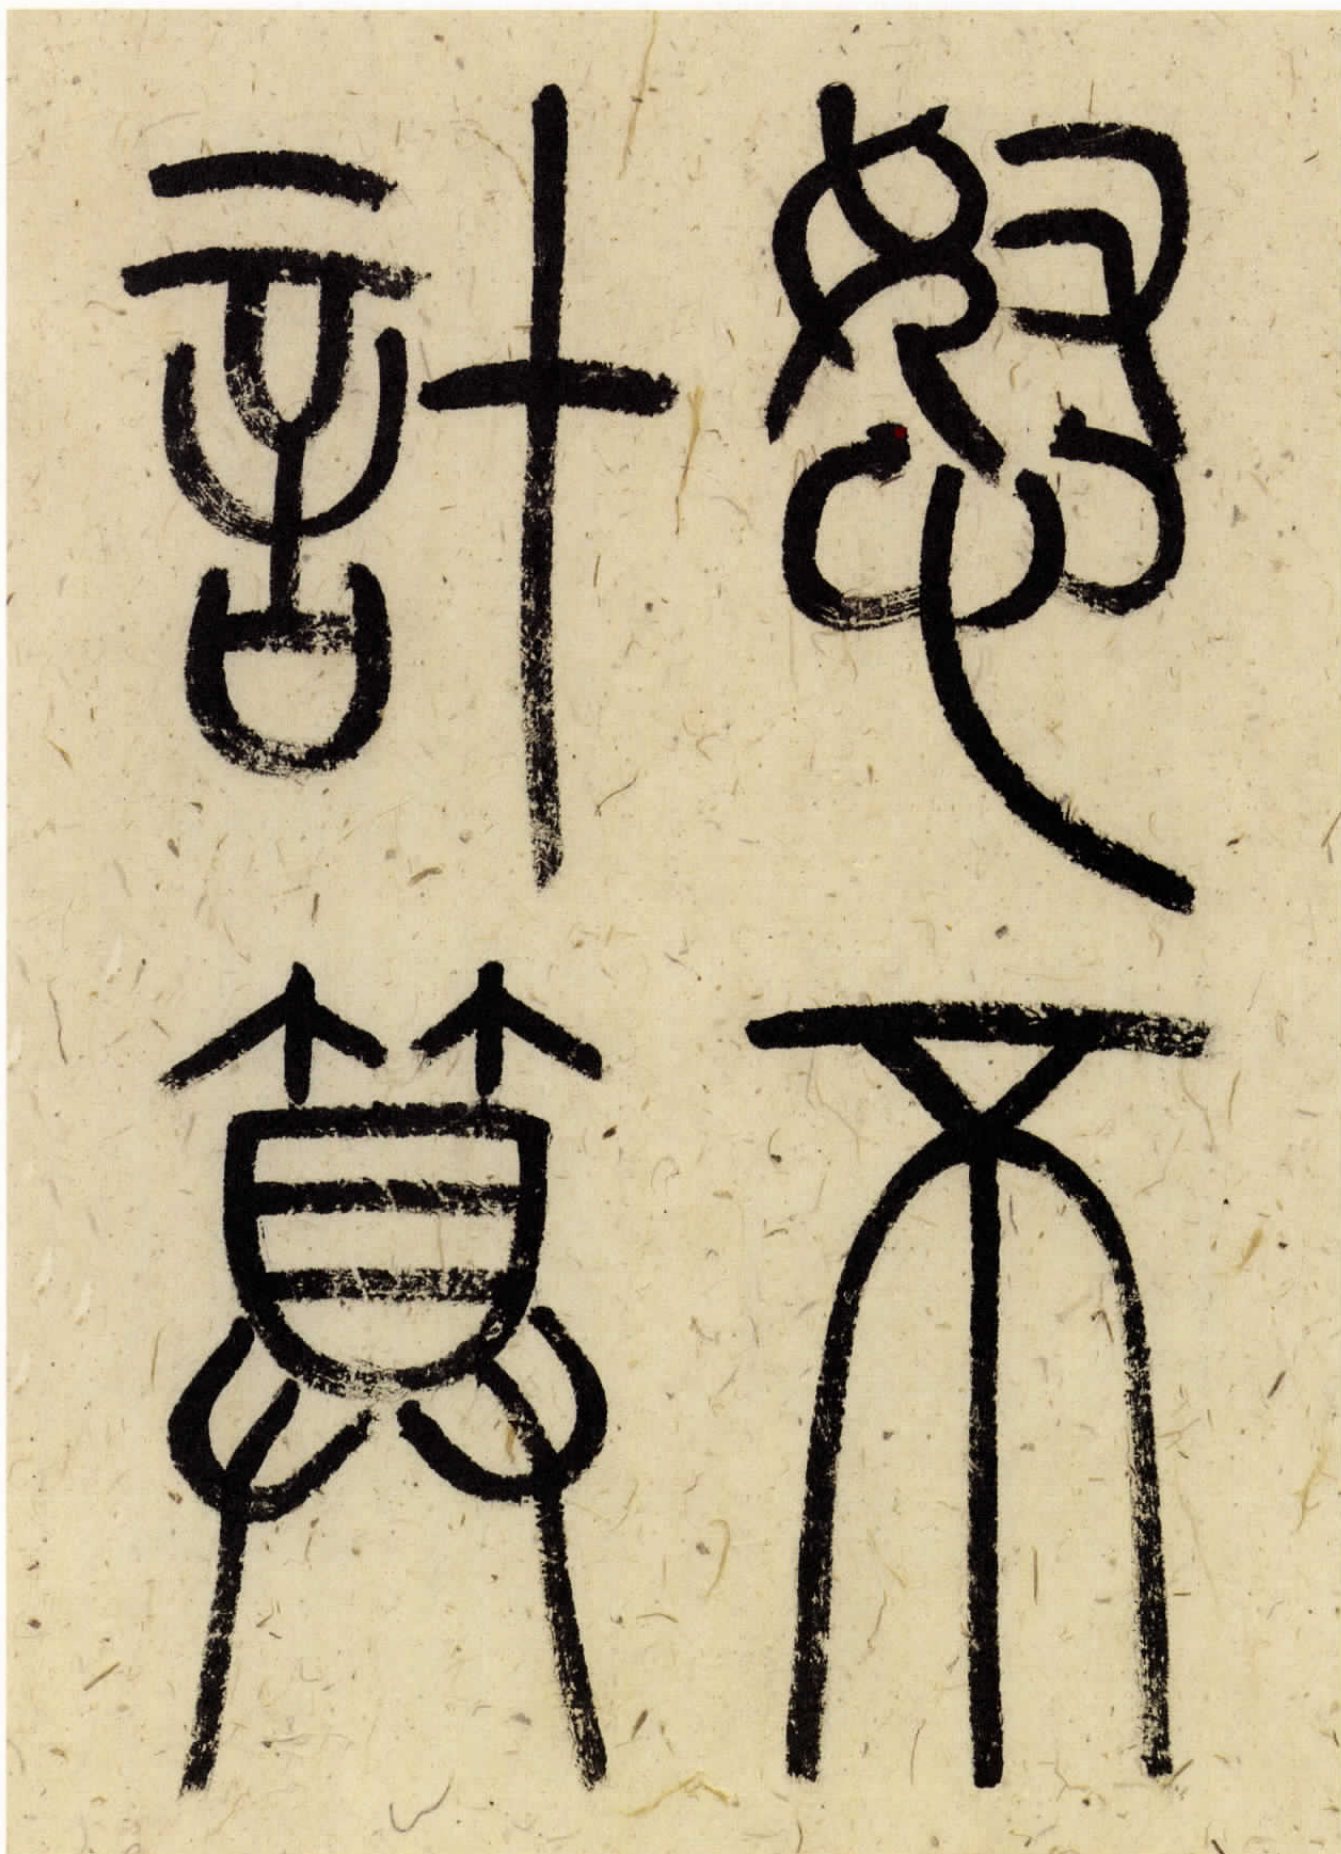 怒不
計算